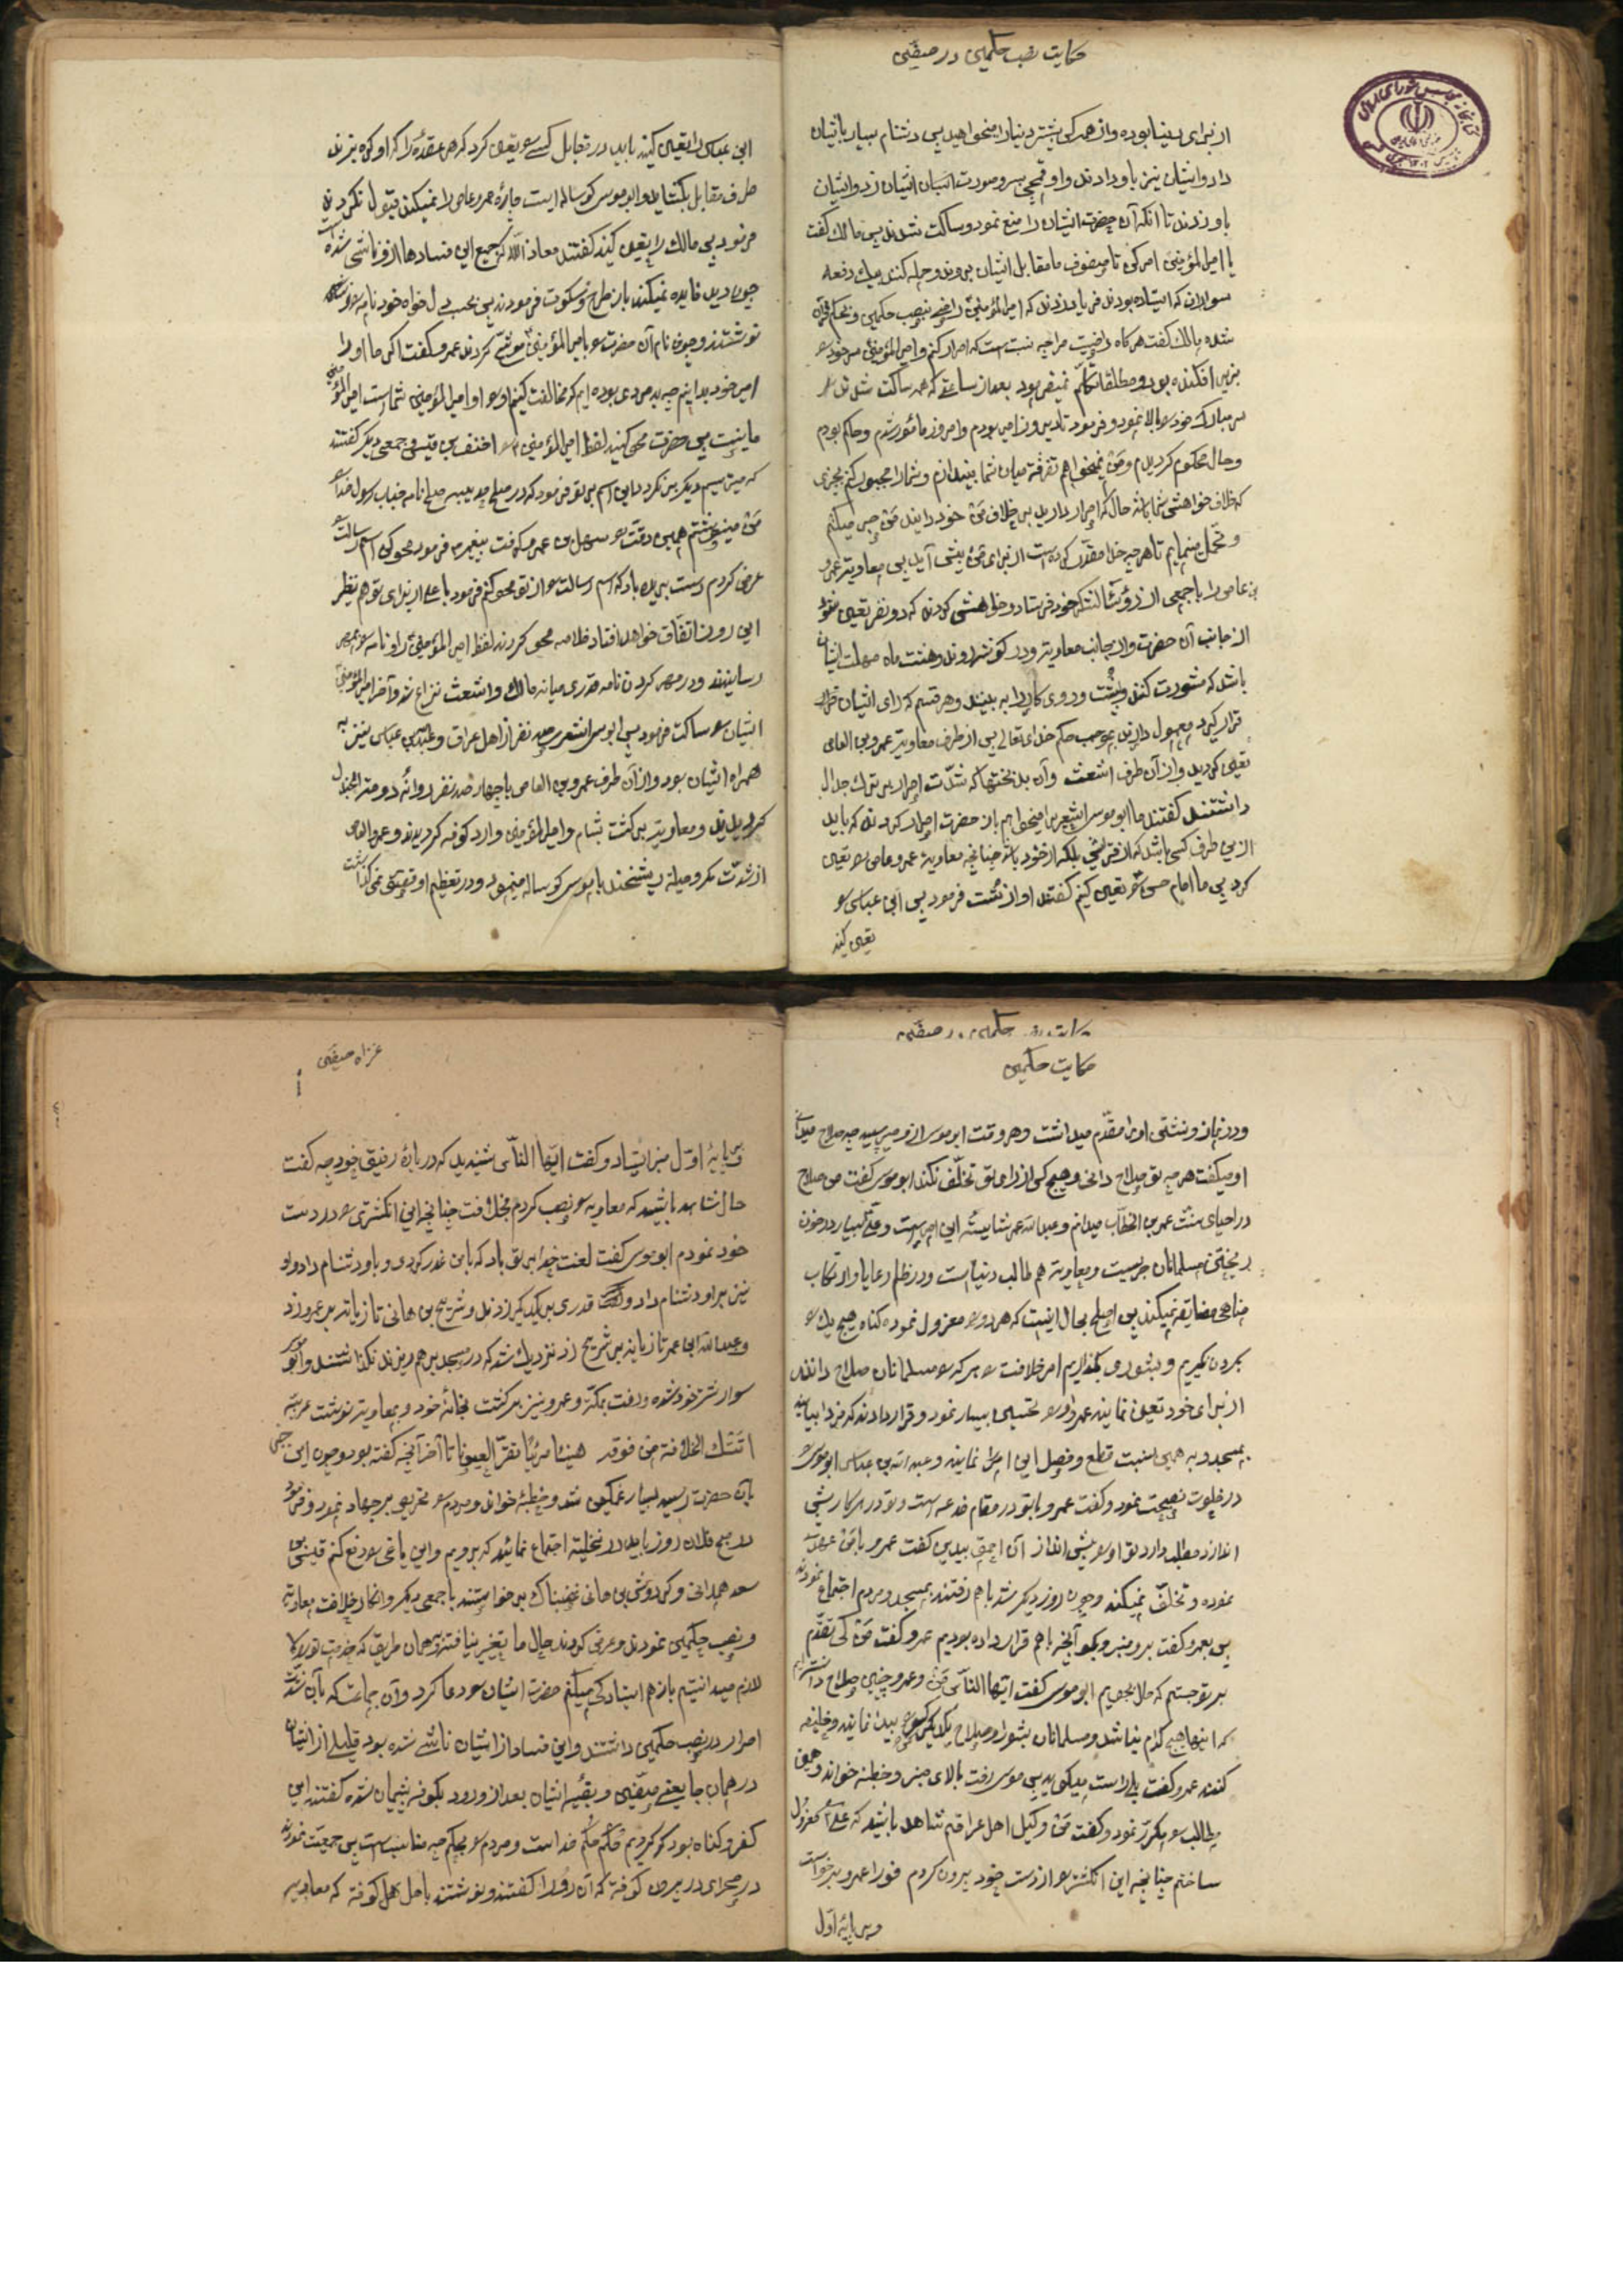 حکایت نصب حکمین در صفین
از برای دنیا بوده و از همه کس بیشتر دنیا را میخواهید پس دشنام بسیار بایشان
داد و ایشان نیز باو دادند و او قمچی بسر و صورت اسبان ایشان زد و ایشان
باو زدند تا آنکه آن حضرت ایشان را منع نمود و ساکت شدند پس مالک گفت
یا امیرالمؤمنین امر کن تا صفوف ما مقابل ایشان برود و حمله کنند بیک دفعه
سواران که ایستاده بودند فریاد زدند که امیرالمؤمنین راضی بنصب حکمین و بحکم قرآن
شده مالک گفت هرگاه راضیست مرا چه نسبت است که اصرار کنم و امیرالمؤمنین سر خود را
بزیر افکنده بود و مطلقا تکلم نمیفرمود بعد از ساعتی که همه ساکت شدند
سر مبارک خود را بالا نمود و فرمود تا دیروز امیر بودم و امروز مأمور شدم و حاکم بودم
و حال محکوم گردیدم و من نمیخواهم تفرقه میان شما بیندازم و شما را مجبور کنم بچیزی
که خلاف خواهش شما باشد حال که اصرار دارید بر خلاف من خود را بند من صبر میکنم
و تحمل مینمایم تا هر چه خدا مقدر کرده است از برای من پیش آید پس معاویه عمرو
بن عاص را با جمعی از رؤسا لشکر خود فرستاد و خواهش کردند که دو نفر تعیین شود
از جانب آن حضرت و از جانب معاویه و در کوفه بروند و هشت ماه مهلت ایشان
باشد که مشورت کنند و پشت و روی کار را به بینند و هر قسم که رای ایشان قرار
قرار گیرد معمول دارند بموجب حکم خدای تعالی پس از طرف معاویه عمرو بن العاص
تعیین گردید و از آن طرف اشعث و آن بدبختها که شدت اصرار بر ترک جدال
داشتند گفتند ما ابوموسی اشعری را میخواهیم باز حضرت اصرار کردند که باید
از این طرف کسی باشد که از قریش بلکه از خود باشد چنانچه معاویه عمرو عاص را تعیین
کرد پس ما امام حسن را تعیین کنیم گفتند او از تست فرمود پس ابن عباس را
تعیین کنید
ابن عباس را تعیین کنید باید در مقابل کسی را تعیین کرد که هر عقده را که او گره بزند
طرف مقابل بگشاید و ابوموسی گوساله ایست چاره عمرو عاص را نمیکند قبول نکردند
فرمود پس مالک را تعیین کنید گفتند معاذ الله که جمیع این فسادها از او ناشی شده
چون دید فایده نمیکند باز طرح و سکوت فرمودند پس بحسب دلخواه خود نامه
نوشتند و چون نام آن حضرت را بامیرالمؤمنین موشح کردند عمرو گفت اگر ما او را
امیر خود بدانیم چه بد مردمی بوده ایم که مخالفت کنیم او را و او امیرالمؤمنین شماست امیرالمؤمنین
ما نیست پس حضرت محو کنید لفظ امیرالمؤمنین را احنف بن قیس و جمعی دیگر گفتند
که میترسیم دیگر برنگردد این اسم بر تو فرمود که در صلح حدیبیه صلح نامه جناب رسول خدا
من مینوشتم همین وقت سهل بن عمرو گفت پیغمبر فرمود محو کن اسم رسالت را
عرض کردم دست بریده باد که اسم رسالت را از تو محو کنم فرمود یا علی از برای تو هم نظیر
این روز اتفاق خواهد افتاد خلاصه محو کردند لفظ امیرالمؤمنین را و نامه را بمهر
رسانیدند و در مهر کردن نامه قدری میانه مالک و اشعث نزاع شد و آخر امیرالمؤمنین
ایشان را ساکت فرمود پس ابوموسی اشعری نفر از اهل عراق و عبدالله بن عباس نیز به
همراه ایشان بود و از آن طرف عمرو بن العاص با چهارصد نفر روانه دومة الجندل
گردیدند و معاویه برگشت بشام و امیرالمؤمنین وارد کوفه گردیدند و عمرو العاص
از شدت مکر و حیله ریشخند بابوموسی گوساله مینمود و در تعظیم او توقیر نمیگذاشت
حکایت حکمین
و در نماز و نشستن او را مقدم میداشت و هر وقت ابوموسی از او میپرسید چه صلاح میدانی
او میگفت هر چه تو صلاح دانی و هیچ کس از رای تو تخلف نکند ابوموسی گفت من صلاح
در احیای سنت عمر بن الخطاب میدانم و عبدالله عمر شایسته این امر است و علی بسیار در خون
ریختن مسلمانان حریصست و معاویه هم طالب دنیا است و در ظلم رعایا و ارتکاب
مناهی مضایقه نمیکند پس اصلح بحال اینست که هر دو را معزول نموده گناه هیچ یک را
بگردن نگیریم و بشوری بگذاریم امر خلافت را هر که را مسلمانان صلاح دانند
از برای خود تعیین نمایند عمرو او را تحسین بسیار نمود و قرار دادند که فردا بیایند
بمسجد و به همین نسبت قطع و فصل این امر نمایند و عبدالله بن عباس ابوموسی را
در خلوت نصیحت نمود و گفت عمرو با تو در مقام خدعه است و تو در هر کار پیش
اندازد مطلبی دارد تو او را پیش انداز آن احمق بیدین گفت عمرو با من عهد
نموده و تخلف نمیکند و چون روز دیگر شد باهم رفتند بمسجد و مردم اجتماع نمودند
پس بعمرو گفت برو منبر و بگو آنچه باهم قرار داده بودیم عمرو گفت من کی تقدم
بر تو جستم که حال بجویم ابوموسی گفت ایها الناس من و عمرو چنین صلاح دانستیم
که اینها هیچ کدام نباشند و مسلمانان بشورا و صلاح یکدیگر کسی را پیدا نمایند و خلیفه
کنند عمرو گفت بلی راست میگوید پس ابوموسی رفت بالای منبر و خطبه خواند و همین
مطالب را مکرر نمود و گفت من وکیل اهل عراقم شاهد باشید که علی را معزول
ساختم چنانچه این انگشتر را از دست خود بیرون کردم فورا عمرو برخواست
و بر پایه اول
غزاه صفین
و بر پایه اول منبر ایستاد و گفت ایها الناس شنیدید که در باره رفیق خود چه گفت
حال شاهد باشید که معاویه را نصب کردم بخلافت چنانچه این انگشتری را در دست
خود نمودم ابوموسی گفت لعنت خدا بر تو باد که با من غدر کردی و باو دشنام داد و او
نیز بر او دشنام داد و قدری بر یکدیگر زدند و شریح بن هانی تازیانه بر عمرو زد
و عبدالله ابن عمر تازیانه بر شریح زد نزدیک شد که در مسجد بر هم بریزند نگذاشتند و ابوموسی
سوار شتر خود شده و رفت بمکه و عمرو نیز برگشت بخانه خود و بمعاویه نوشت عریضه
اتتک الخلافة من فوقه هنیئا مریئا تقر العیونا تا آخر آنچه گفته بود و چون این خبر
بآن حضرت رسید بسیار غمگین شد و خطبه خواند و مردم را تحریص بر جهاد نمود و فرمود
در صبح فلان روز باید در نخیله اجتماع نمائید که برویم و این یاغی را دفع کنم قیس بن
سعد همدانی و کردوس بن هانی غضبناک برخواستند با جمعی دیگر و انکار خلافت معاویه
و نصب حکمین نمودند و عرض کردند حال ما تغییر نیافته همان طریق که خدمت تو را
لازم میدانستیم باز هم ایستادگی میکنیم حضرت ایشان را دعا کرد و آن جماعت که بآن شدت
اصرار در نصب حکمین داشتند و این فساد از ایشان ناشی شده بود قلیلی از ایشان
در همان جا یعنی صفین و بقیه ایشان بعد از ورود بکوفه پشیمان شده گفتند این
کفر و گناه بود که کردیم حکم حکم خداست و مردم را بحکم چه مناسبت است پس جمعیت نمودند
در صحرای در بیرون کوفه که آن را حرورا گفتند و نوشتند باهل کوفه که معاویه